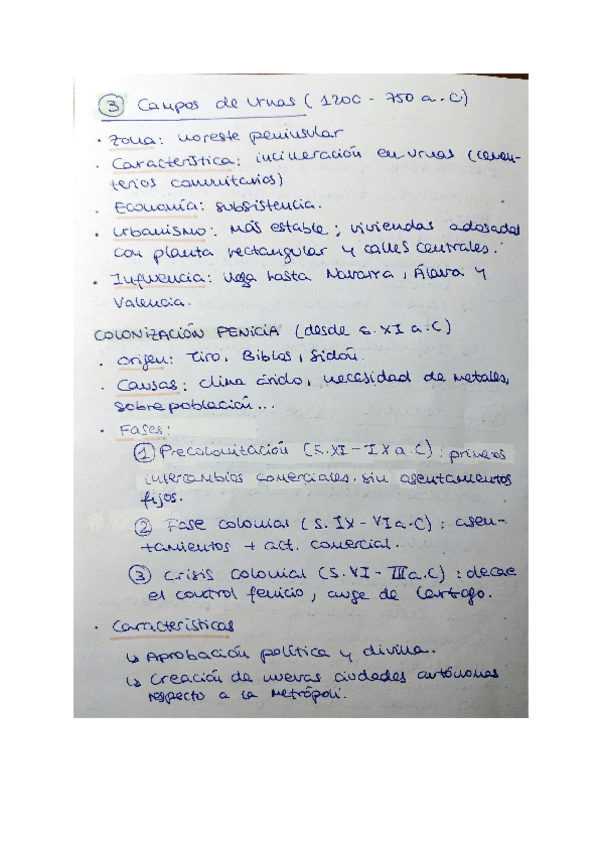 ③ Campos de Urnas (1200 - 750 a.C)
· Zona: noreste peninsular
· Característica: incineración en urnas (cemen-
terios comunitarios)
· Economía: subsistencia.
· Urbanismo: más estable; viviendas adosadas
con planta rectangular y calles centrales.
· Influencia: llega hasta Navarra, Álava y
Valencia.
COLONIZACIÓN FENICIA (desde s. XI a.C)
· Origen: Tiro, Biblos, Sidón.
· Causas: clima árido, necesidad de metales,
sobrepoblación...
· Fases:
① Precolonización (S. XI - IX a.C): primeros
intercambios comerciales sin asentamientos
fijos.
② Fase colonial (S. IX - VI a.C): asen-
tamientos + act. comercial.
③ Crisis colonial (S. VI - III a.C): decae
el control fenicio, auge de Cartago.
· Características
↳ Aprobación política y divina.
↳ Creación de nuevas ciudades autónomas
respecto a la metrópoli.